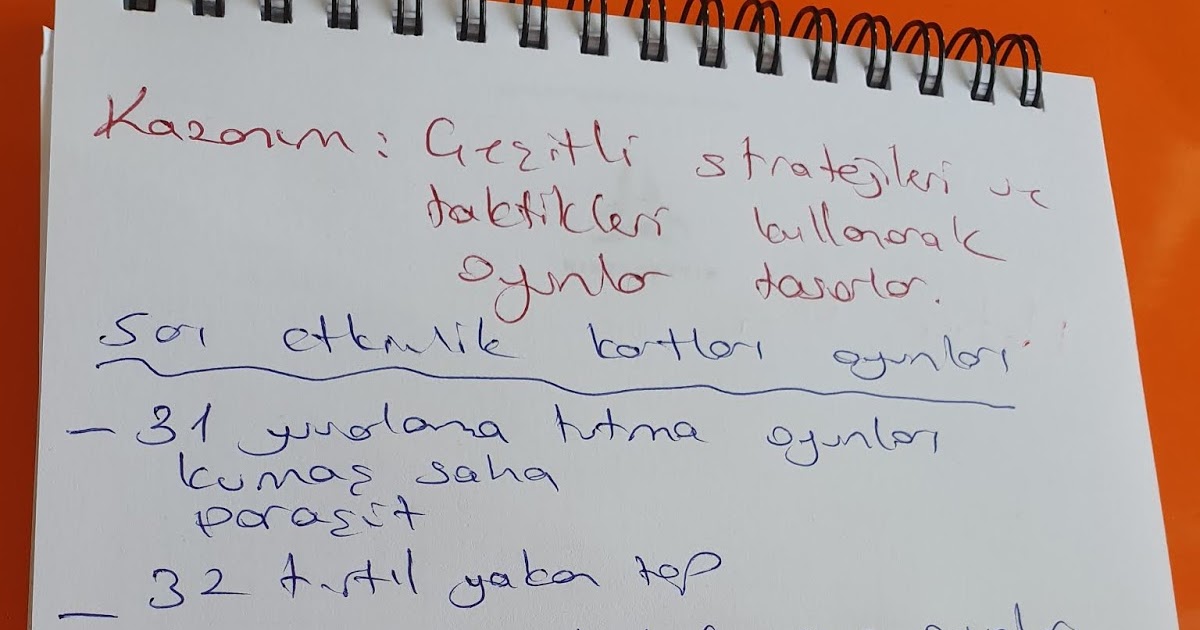 Kazanım: Çeşitli stratejileri ve
taktikleri kullanarak
oyunlar tasarlar.
Sarı etkinlik kartları oyunları
- 31 yuvarlama tutma oyunları
kumaş saha
paraşüt
- 32 tırtıl yakan top